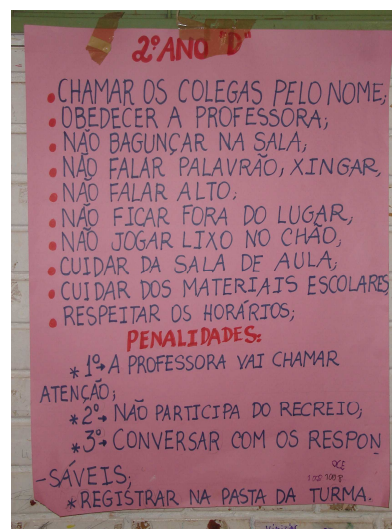 2º ANO "D"
• CHAMAR OS COLEGAS PELO NOME;
• OBEDECER A PROFESSORA;
• NÃO BAGUNÇAR NA SALA;
• NÃO FALAR PALAVRÃO, XINGAR,
• NÃO FALAR ALTO;
• NÃO FICAR FORA DO LUGAR;
• NÃO JOGAR LIXO NO CHÃO;
• CUIDAR DA SALA DE AULA;
• CUIDAR DOS MATERIAIS ESCOLARES
• RESPEITAR OS HORÁRIOS;
PENALIDADES:
* 1º→ A PROFESSORA VAI CHAMAR
ATENÇÃO;
* 2º→ NÃO PARTICIPA DO RECREIO;
* 3º→ CONVERSAR COM OS RESPON
-SÁVEIS;
* REGISTRAR NA PASTA DA TURMA.